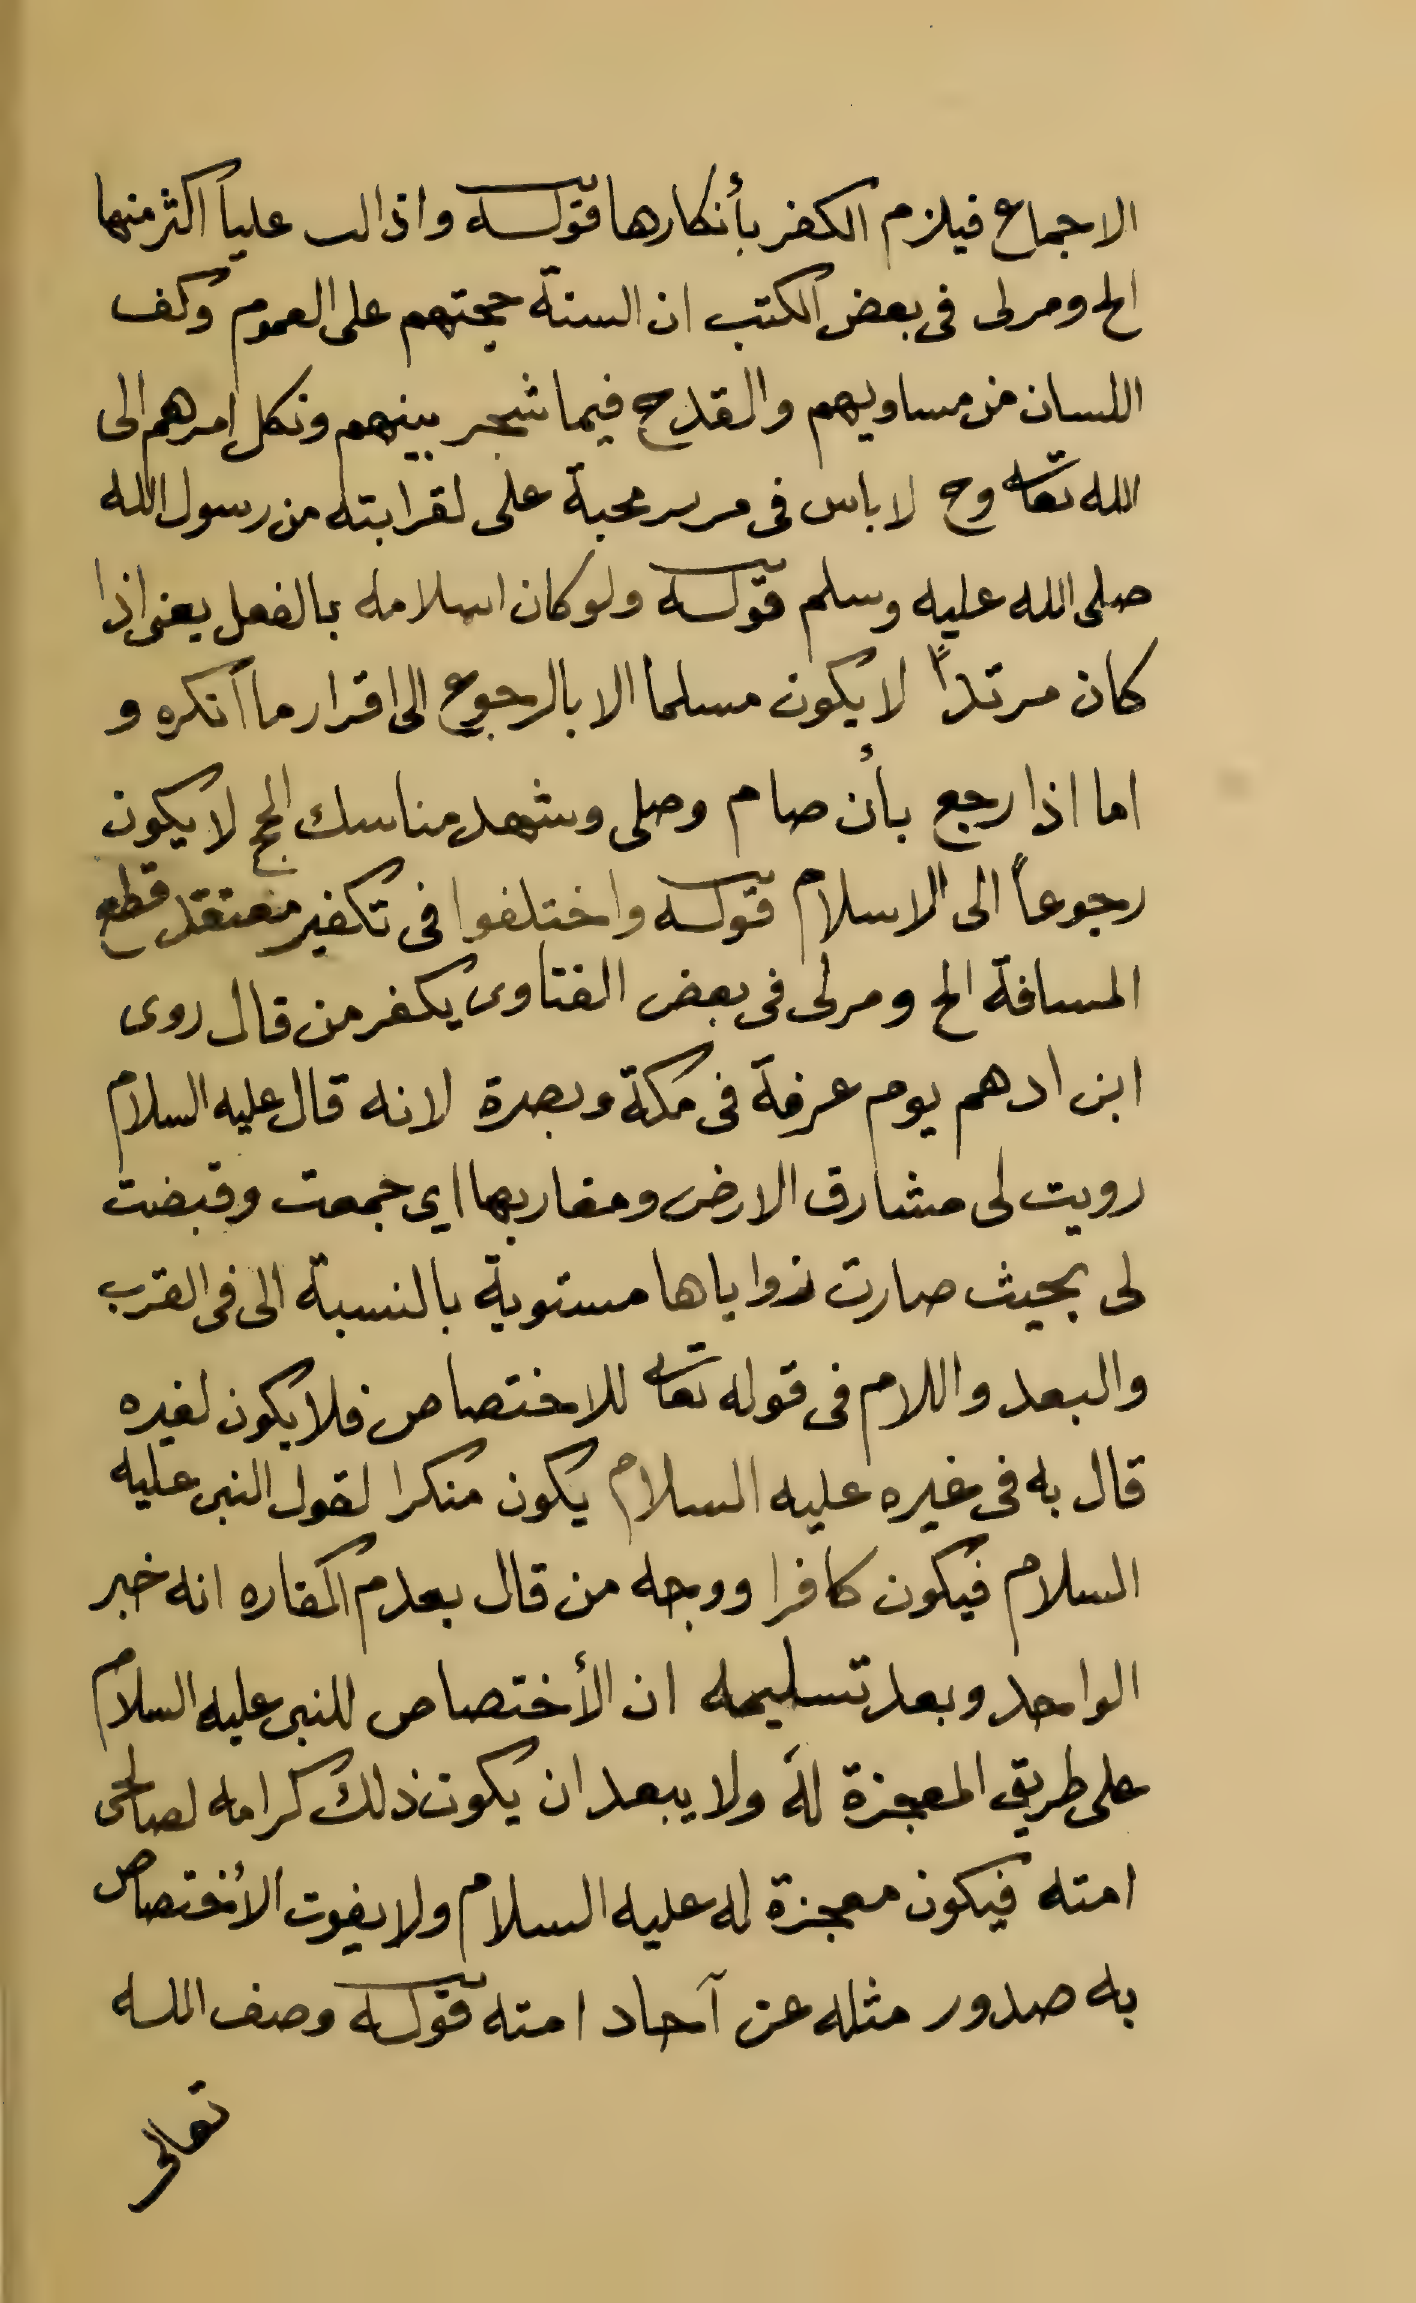 الاجماع فيلزم الكفر بأنكارها قوله واذا احب علياً اكثر منها
الخ ومر لى فى بعض الكتب ان السنة محبتهم على العموم وكف
اللسان من مساويهم والقدح فيما شجر بينهم ونكل امرهم الى
الله تعا وح لا باس فى مزيد محبة على لقرابته من رسول الله
صلى الله عليه وسلم قوله ولو كان اسلامه بالفعل يعنى اذا
كان مرتداً لا يكون مسلما الا بالرجوع الى اقرار ما انكره و
اما اذا رجع بأن صام وصلى وشهد مناسك الحج لا يكون
رجوعاً الى الاسلام قوله واختلفوا فى تكفير معتقد قطع
المسافة الخ ومر لى فى بعض الفتاوى يكفر من قال روى
ابن ادهم يوم عرفة فى مكة وبصرة لانه قال عليه السلام
رويت لى مشارق الارض ومغاربها اى جمعت وقبضت
لى بحيث صارت زواياها مستوية بالنسبة الى فى القرب
والبعد واللام فى قوله تعا للاختصاص فلا يكون لغيره
قال به فى غيره عليه السلام يكون منكرا لقول النبى عليه
السلام فيكون كافرا ووجه من قال بعدم اكفاره انه خبر
الواحد وبعد تسليمه ان الأختصاص للنبى عليه السلام
على طريق المعجزة له ولا يبعد ان يكون ذلك كرامه لصالحى
امته فيكون معجزة له عليه السلام ولا يفوت الأختصاص
به صدور مثله عن آحاد امته قوله وصف الله
تعالى